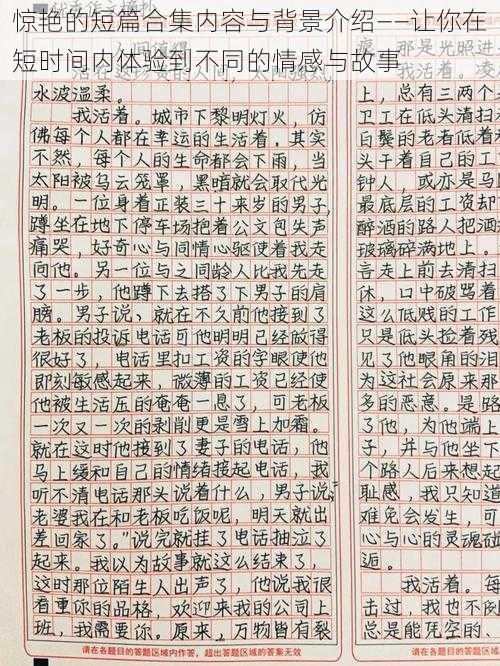 惊艳的短篇合集内容与背景介绍——让你在
短时间内体验到不同的情感与故事
水波温柔。
我活着。城市下黎明灯火，仿
佛每个人都在幸运的生活着。其实
不然，每个人的生命都会下雨，当
太阳被乌云笼罩，黑暗就会取代光
明。一位身着正装三十来岁的男子，
蹲坐在地下停车场抱着公文包失声
痛哭，好奇心与同情心驱使着我走
向他。另一位与之同龄人比我先走
了一步，他蹲下去搭了下男子的肩
膀。男子说、就在不久前他接到了
老板的投诉电话可他明明已经做得
很好了，电话里扣工资的字眼使他
即刻敏感起来，微薄的工资已经使
他被生活压的奄奄一息了，可老板
一次又一次的剥削更是雪上加霜。
就在这时他接到了妻子的电话，他
马上缓和自己的情绪接起电话，我
听不清电话那头说着什么，男子说，
老婆我在和老板吃饭呢，明天就出
差回家了。”说完就挂了电话抽泣了
起来。我以为故事就这么结束了，
这时那位陌生人出声了。他说我很
看重你的品格，欢迎来我的公司上
班，我需要你。原来，万物皆有裂
请在各题目的答题区域内作答，超出答题区域的答案无效
痕，那是光照进
上，总有三两个
卫工在低头清扫
白鬓的老者低着
头干着自己的工
钟人，或亦是马
最底层的工资却
醉酒的路人把酒
玻璃碎满地上。
言走上前去清扫
休，口中破骂着
这么低贱的工作
只是低头捡着残
见了他眼角的泪
为这社会原来那
多的恶意。是路
了他，为他端上
子，并与他坐下
个路人后来想起
耻感，我只知道
难免会发生，可
心与心的灵魂础
逅。
我活着。每
击过，我也不
总是能凭空的、
请在各题目的